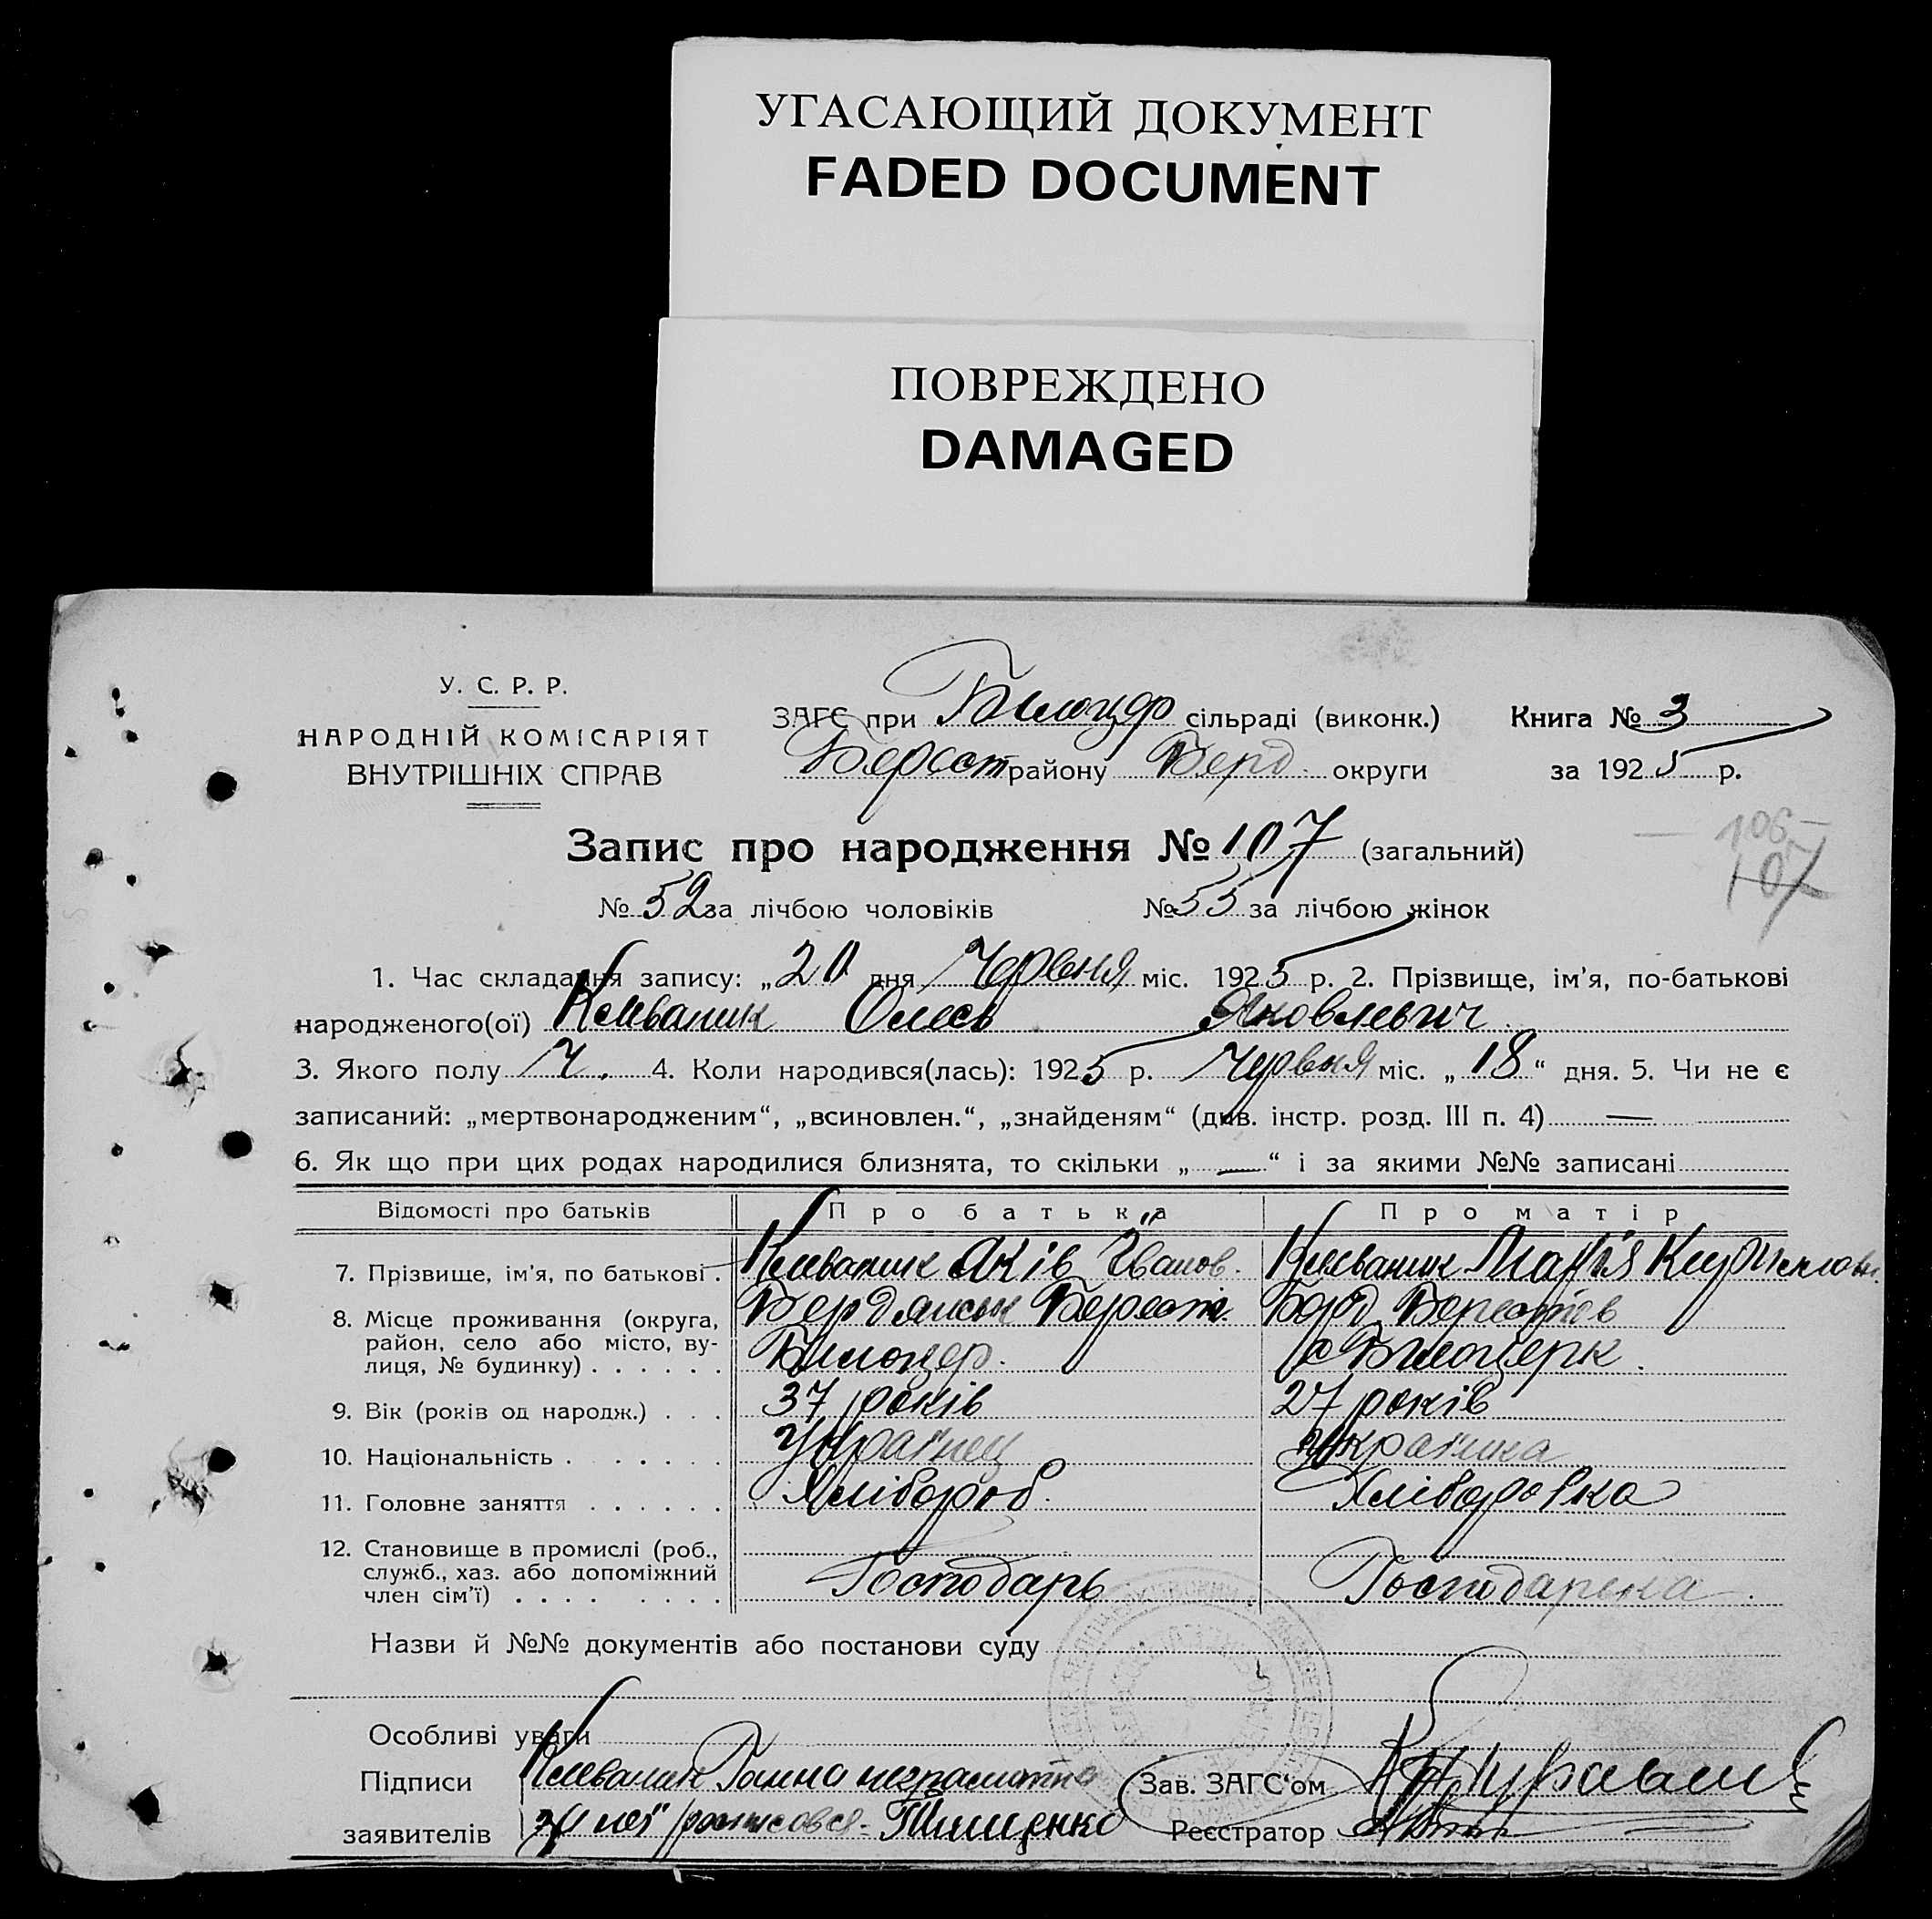 УГАСАЮЩИЙ ДОКУМЕНТ
FADED DOCUMENT
ПОВРЕЖДЕНО
DAMAGED
У. С. Р. Р.
НАРОДНІЙ КОМІСАРІЯТ
ВНУТРІШНІХ СПРАВ
ЗАГС при Билоцер сільраді (виконк.) Книга № 3
Берест району Берд. округи за 1925 р.
Запис про народження № 107 (загальний)
106
107
№ 52 за лічбою чоловіків № 55 за лічбою жінок
1. Час складання запису: „20 дня Червня міс. 1925 р. 2. Прізвище, ім'я, по-батькові
народженого(ої) Клеваник Олесь Яковлевич
3. Якого полу Ч. 4. Коли народився(лась): 1925 р. Червня міс. „18“ дня. 5. Чи не є
записаний: „мертвонародженим“, „всиновлен.“, „знайденям“ (див. інстр. розд. III п. 4) —
6. Як що при цих родах народилися близнята, то скільки „—“ і за якими №№ записані
Відомості про батьків Про батька Про матір
7. Прізвище, ім'я, по батькові. Клеваник Яків Іванов. Клеваник Марія
8. Місце проживання (округа, Бердянськ Берест. Берд. Берестов
район, село або місто, ву-
лиця, № будинку) . . . . . . Билоцер. с Билоцерк.
9. Вік (років од народж.) . . . 37 років 27 років
10. Національність . . . . . . . Українец Українка
11. Головне заняття . . . . . . Хлібороб. Хліборобка
12. Становище в промислі (роб.,
служб., хаз. або допоміжний
член сім'ї) . . . . . . . . Господарь Господарька.
Назви й №№ документів або постанови суду
Особливі уваги
Підписи Клеваник Ганна неграмотна Зав. ЗАГС'ом
заявителів За неї росписовся Тимценко Реєстратор